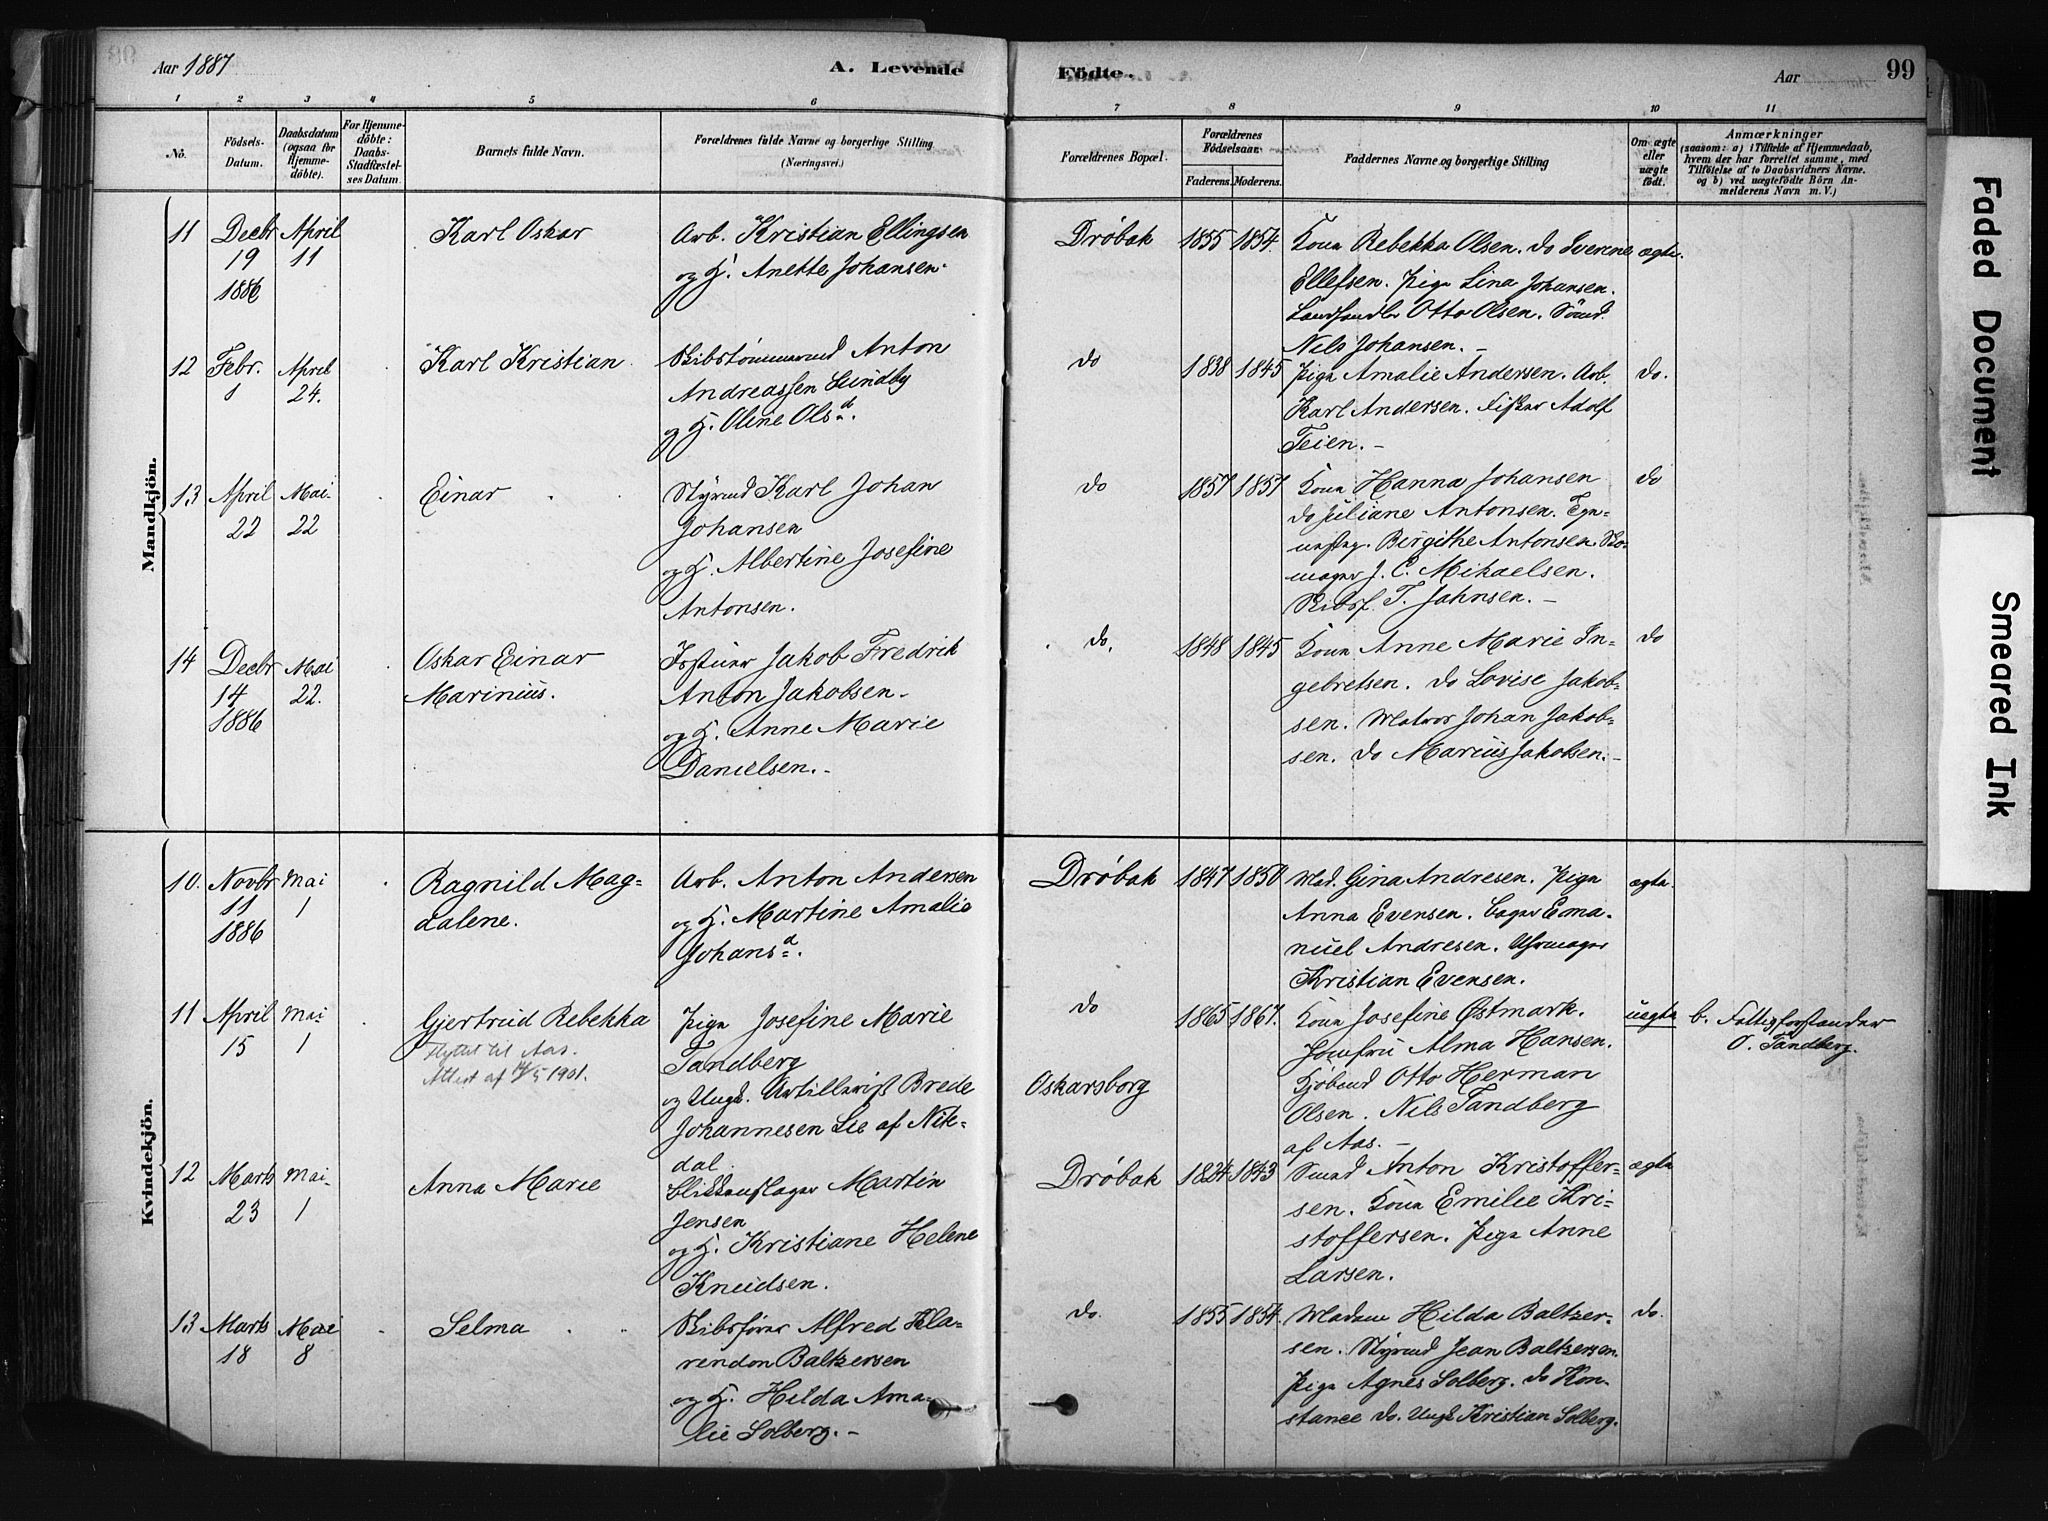 Aar 1887
A. Levende Fødte.
Aar
99
1 2 3 4 5 6 7 8 9 10 11
No.
Fødsels-Datum.
Daabsdatum (ogsaa for Hjemmedøbte).
For Hjemmedøbte: Daabs-Stadfæstelses Datum.
Barnets fulde Navn.
Forældrenes fulde Navne og borgerlige Stilling (Næringsvei.)
Forældrenes Bopæl.
Forældrenes Fødselsaar.
Faderens. Moderens.
Faddernes Navne og borgerlige Stilling
Om ægte eller uægte født.
Anmærkninger
(saasom: a) i Tilfælde af Hjemmedaab, hvem der har forrettet samme, med Tilføielse af to Daabsvidners Navne, og b) ved uægtefødte Børn Anmelderens Navn m. V.)
Mandkjön.
11 Decbr 19 1886
April 11
Karl Oskar
Arb. Kristian Ellingsen
og H. Anette Johansen.
Drøbak 1855 1854.
Kona Rebekka Olsen. do Iverene
Ellefsen. Pige Lina Johansen.
Landhandler Otto Olsen. Sömd.
Nils Johansen. –
ægte.
12 Febr. 1
April 24.
Karl Kristian
Skibstømmermd Anton
Andreassen Sundby
og H. Oline Olsd.
do 1838 1845
Pige Amalie Andersen. Arb.
Karl Andersen. Fisker Adolf
Teien. –
do.
13 April 22
Mai 22
Einar
Styrmd Karl Johan
Johansen
og H. Albertine Josefine
Antonsen.
do 1857 1857
Kona Hanna Johansen
do Juliane Antonsen. Ugn-
Birgithe Antonsen. Sko-
mager J. C. Mikaelsen.
Skibsf. T. Jahnsen. –
do
14 Decbr 14 1886
Mai 22.
Oskar Einar
Marinius.
Jakob Fredrik
Anton Jakobsen.
og H. Anne Marie
Danielsen. –
do. 1848 1845
Kona Anne Marie In-
gebretsen. do Lovise Jakob-
sen. Matros Johan Jakob-
sen. do Marius Jakobsen. –
do
Kvindekjön.
10. Novbr 11 1886
Mai 1
Ragnild Mag-
dalene.
Arb. Anton Andersen
og H. Martine Amalie
Johansd.
Drøbak 1847 1850
Mad. Gina Andresen. Pige
Anna Evensen. Bager Ema-
nuel Andresen. Uhrmager
Kristian Evensen.
ægte.
11 April 15
Mai 1
Gjertrud Rebekka
Flyttet til Aas.
Attest af 14/5 1901.
Pige Josefine Marie
Tandberg
og Ungk. Artillerist Brede
Johannesen Lie af Nit-
dal.
do
Oskarsborg
1865 1867.
Kona Josefine Østmark.
Jomfru Alma Hansen.
Kjøbmd Otto Herman
Olsen. Nils Tandberg
af Aas. –
uægte
b. Fattigforstander
O. Tandberg.
12 Marts 23
Mai 1
Anna Marie
Blikkenslager Martin
Jensen
og H. Kristiane Helene
Knudsen.
Drøbak 1834 1843
Smed Anton Kristoffer-
sen. Kona Emilie Kri-
stoffersen. Pige Anne
Larsen.
ægte
13 Marts 18
Mai 8
Selma
Skibsfører Alfred Kla-
rendon Baltzersen
og H. Hilda Ama-
lie Solberg. –
do. 1855 1854.
Madam Hilda Baltzer-
sen. Styrmd Jean Baltzersen.
Pige Agnes Solberg. do Kon-
stance do. Ungk Kristian Solberg.
do.
Faded Document
Smeared Ink